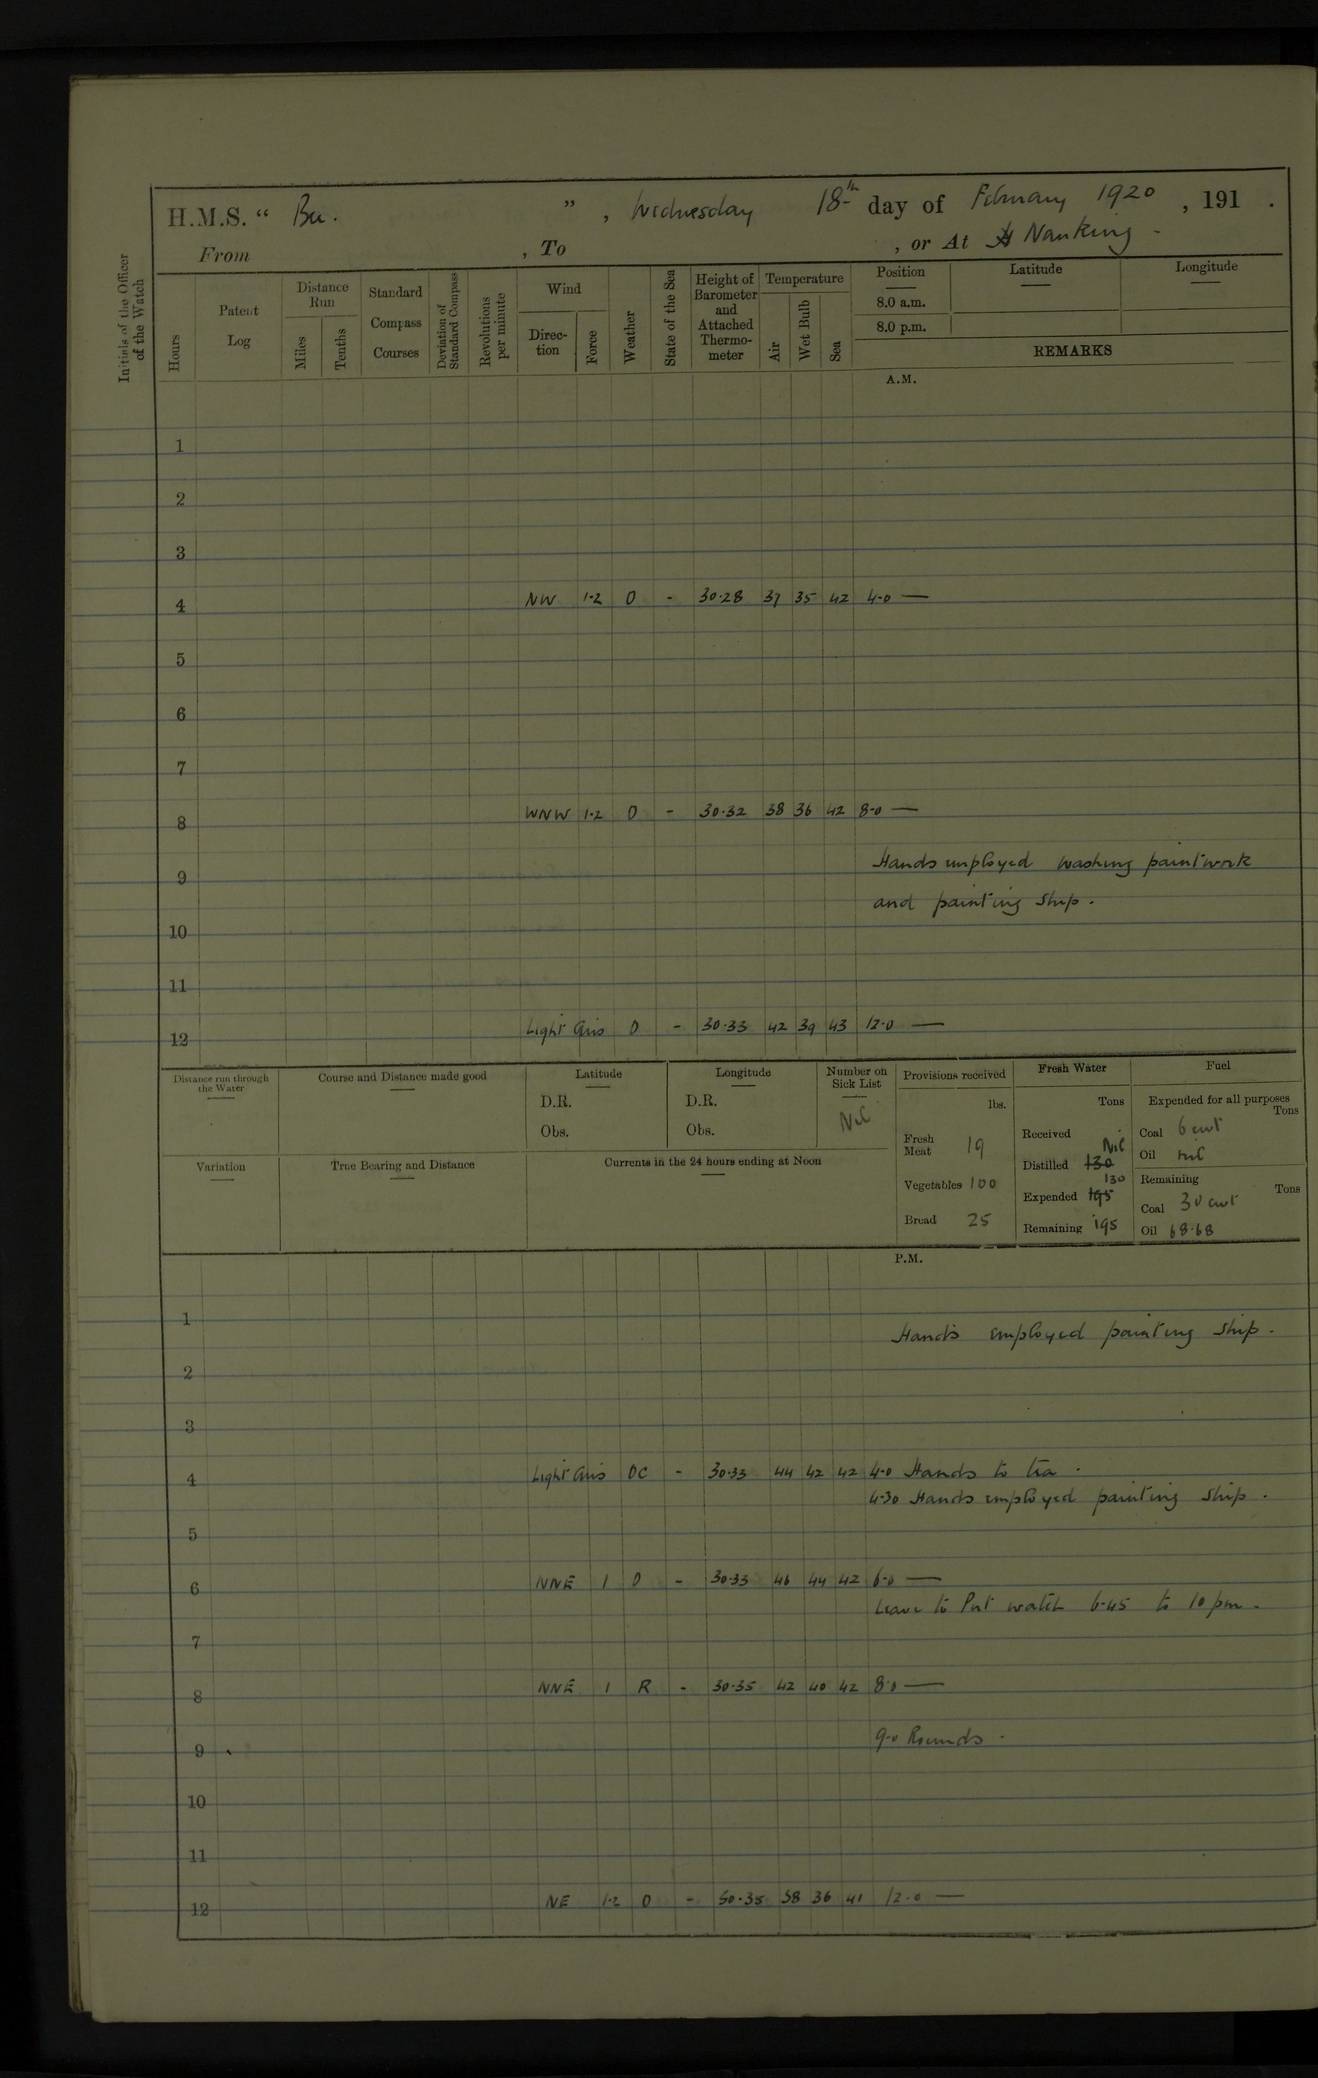 H.M.S. “ Bee. ” , Wednesday 18th day of February 1920 , 191 .
From , To , or At Nanking -
Initials of the Officer of the Watch
Hours
Patent Log
Distance Run
Miles
Tenths
Standard Compass Courses
Deviation of Standard Compass
Revolutions per minute
Wind
Direction
Force
Weather
State of the Sea
Height of Barometer and Attached Thermometer
Temperature
Air
Wet Bulb
Sea
Position
8.0 a.m.
8.0 p.m.
Latitude
Longitude
REMARKS
A.M.
1
2
3
4 NW 1·2 O - 30·28 37 35 42 4-0 —
5
6
7
8 WNW 1·2 O - 30·32 38 36 42 8-0 —
Hands employed washing paintwork
9
and painting ship.
10
11
12 Light Airs O - 30·33 42 39 43 12-0 —
Distance run through the Water
Course and Distance made good
Latitude
D.R.
Obs.
Longitude
D.R.
Obs.
Number on Sick List
Nil
Provisions received
lbs.
Fresh Meat 19
Vegetables 100
Bread 25
Fresh Water
Tons
Received
Nil
Distilled 130
130
Expended 195
Remaining 195
Fuel
Expended for all purposes
Tons
Coal 6 cwt
Oil nil
Remaining
Tons
Coal 30 cwt
Oil 68·68
Variation
True Bearing and Distance
Currents in the 24 hours ending at Noon
P.M.
1
Hands employed painting ship.
2
3
4 Light Airs OC - 30·33 44 42 42 4-0 Hands to tea.
4-30 Hands employed painting ship.
5
6 NNE 1 O - 30·33 46 44 42 6-0 —
Leave to Port watch 6-45 to 10 pm.
7
8 NNE 1 R - 30·35 42 40 42 8-0 —
9 9-0 Rounds.
10
11
12 NE 1·2 O - 30·35 38 36 41 12-0 —